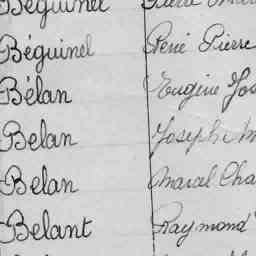 Béguinel Pierre
Béguinel René Pierre
Bélan Eugène Jos
Belan Joseph
Belan Marcel Cha
Belant Raymond